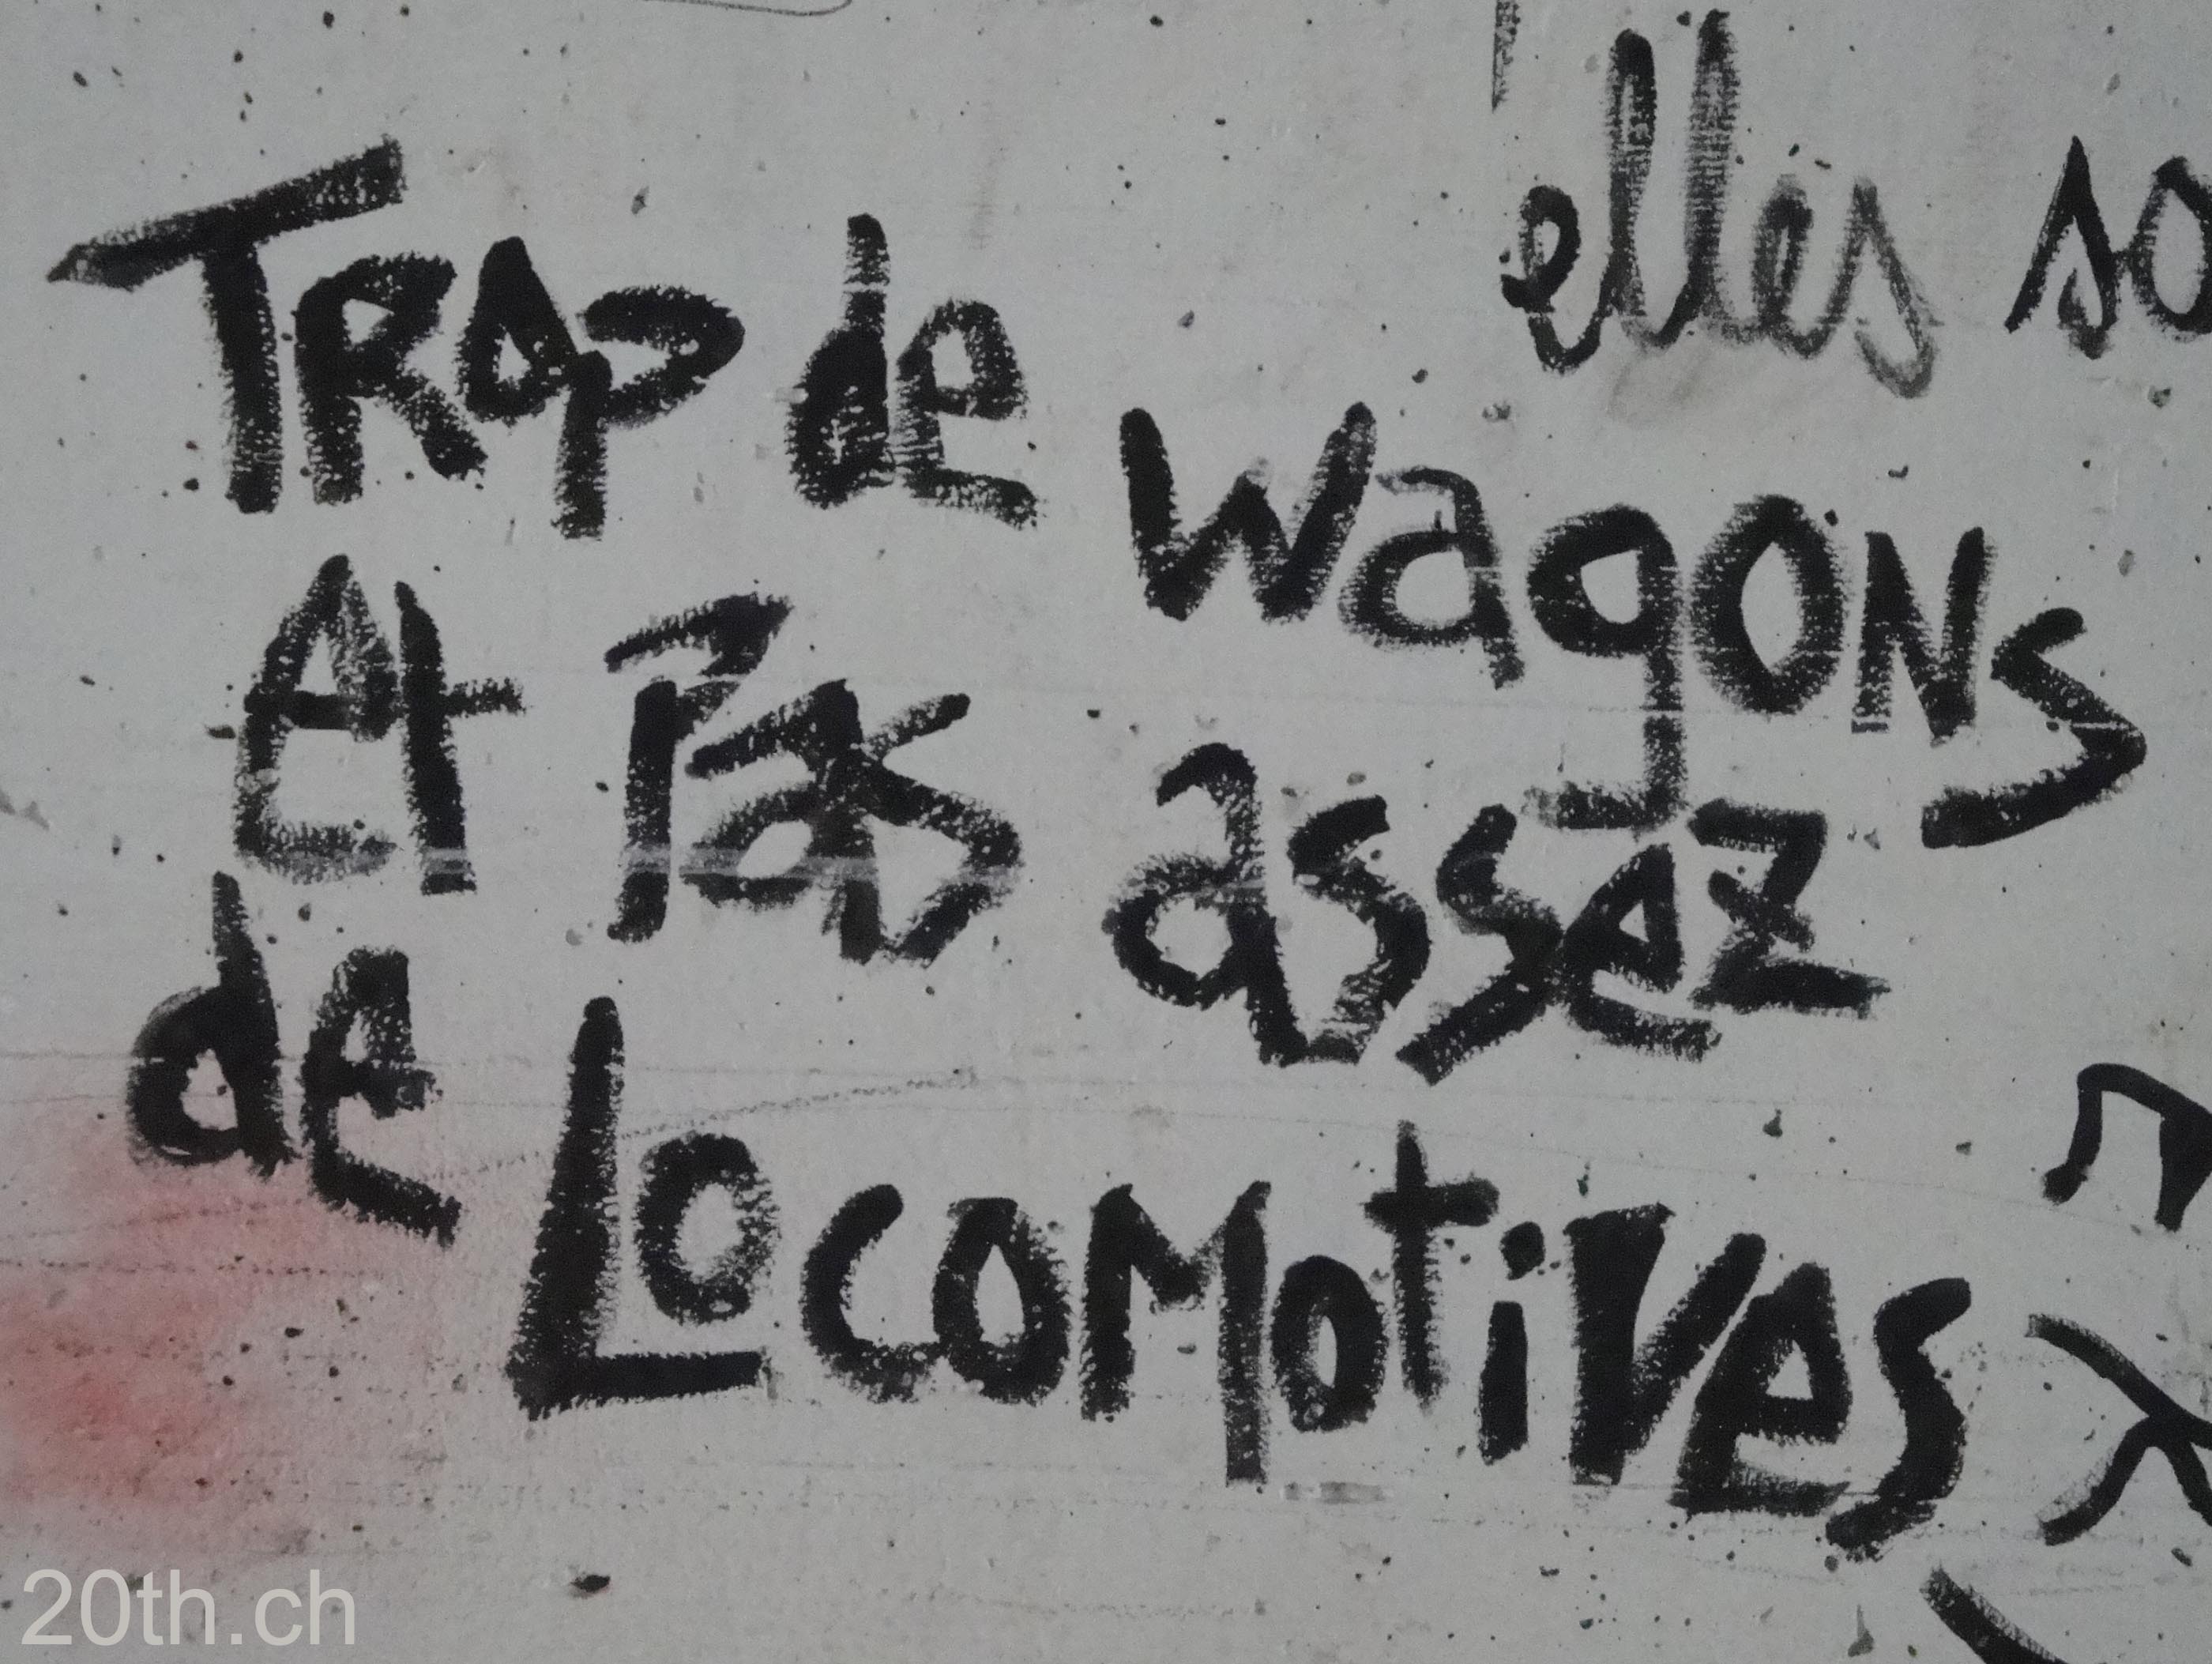 elles so
TRop de
wagoNs
Et Pas assez
de LocoMotives
20th.ch